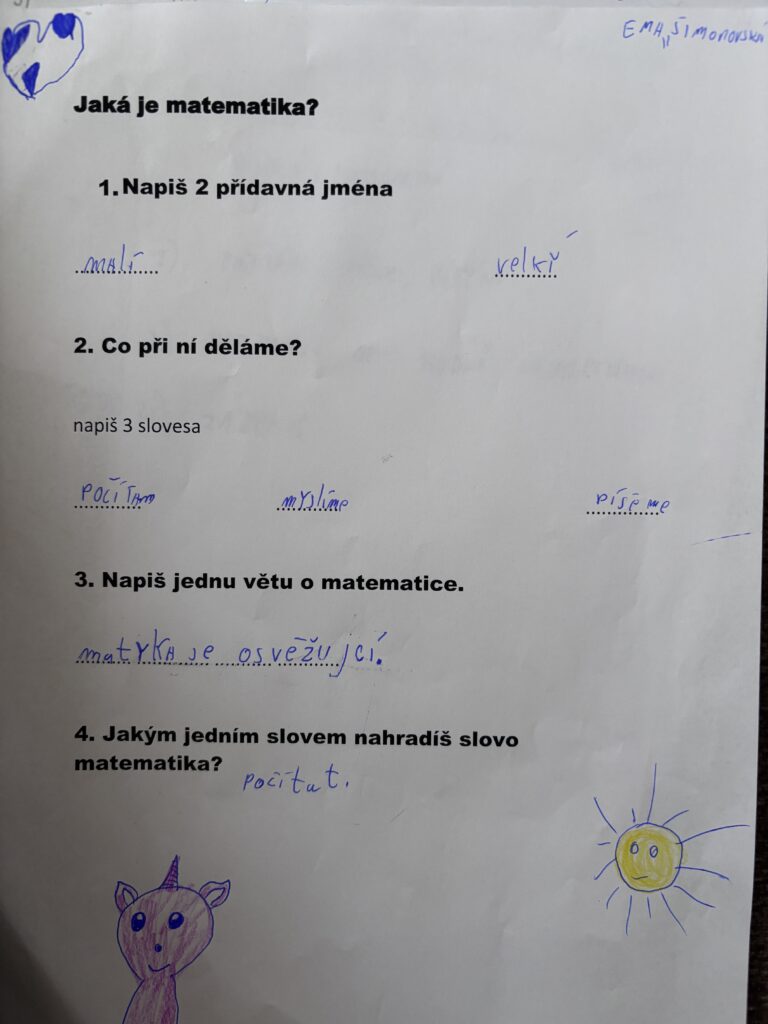 EMA „ ŠIMONOVSKÁ
Jaká je matematika?
1. Napiš 2 přídavná jména
malí velký
2. Co při ní děláme?
napiš 3 slovesa
počítam myslíme píšeme
3. Napiš jednu větu o matematice.
matyka je osvěžujcí.
4. Jakým jedním slovem nahradíš slovo
matematika? počítat.